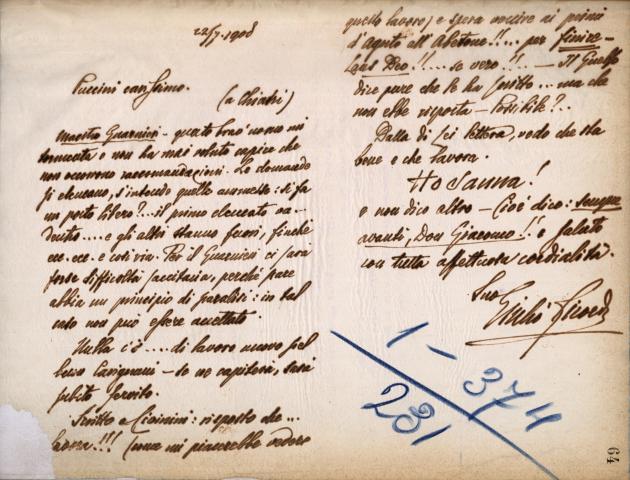 22/7.1908
Puccini carissimo.
(a Chiatri)
Maestro Guarnieri - questo brav'uomo mi
tormenta e non ha mai voluto capire che
non occorrono raccomandazioni. Le domande
si elencano, s'intende quelle ammesse: si fa
un posto libero?... il primo elencato va
dentro.... e gli altri stanno fuori, finchè
ecc. ecc. e così via. Per il Guarnieri ci sarà
forse difficoltà sanitaria, perchè pare
abbia un principio di paralisi: in tal
caso non può essere accettato
Nulla c'è .... di lavoro nuovo pel
Carignani - se ne capiterà, sarà
subito servito.
Scritto a Civinini: risposto che ...
lavora!!! (come mi piacerebbe vedere
quello lavoro) e spera venire ai primi
d'Agosto all'Abetone!!... per finire -
Laus Deo!!.... se vero!!... - Il Guelfo
dice pure che le ha scritto... ma che
non ebbe risposta - Possibile?..
Dalla di Lei lettera, vedo che sta
bene e che lavora.
Hosanna!
e non dico altro - Cioè dico: sempre
avanti, Don Giacomo!! e saluto
con tutta affettuosa cordialità.
Suo
Giulio Ricordi
1 - 374
231
64